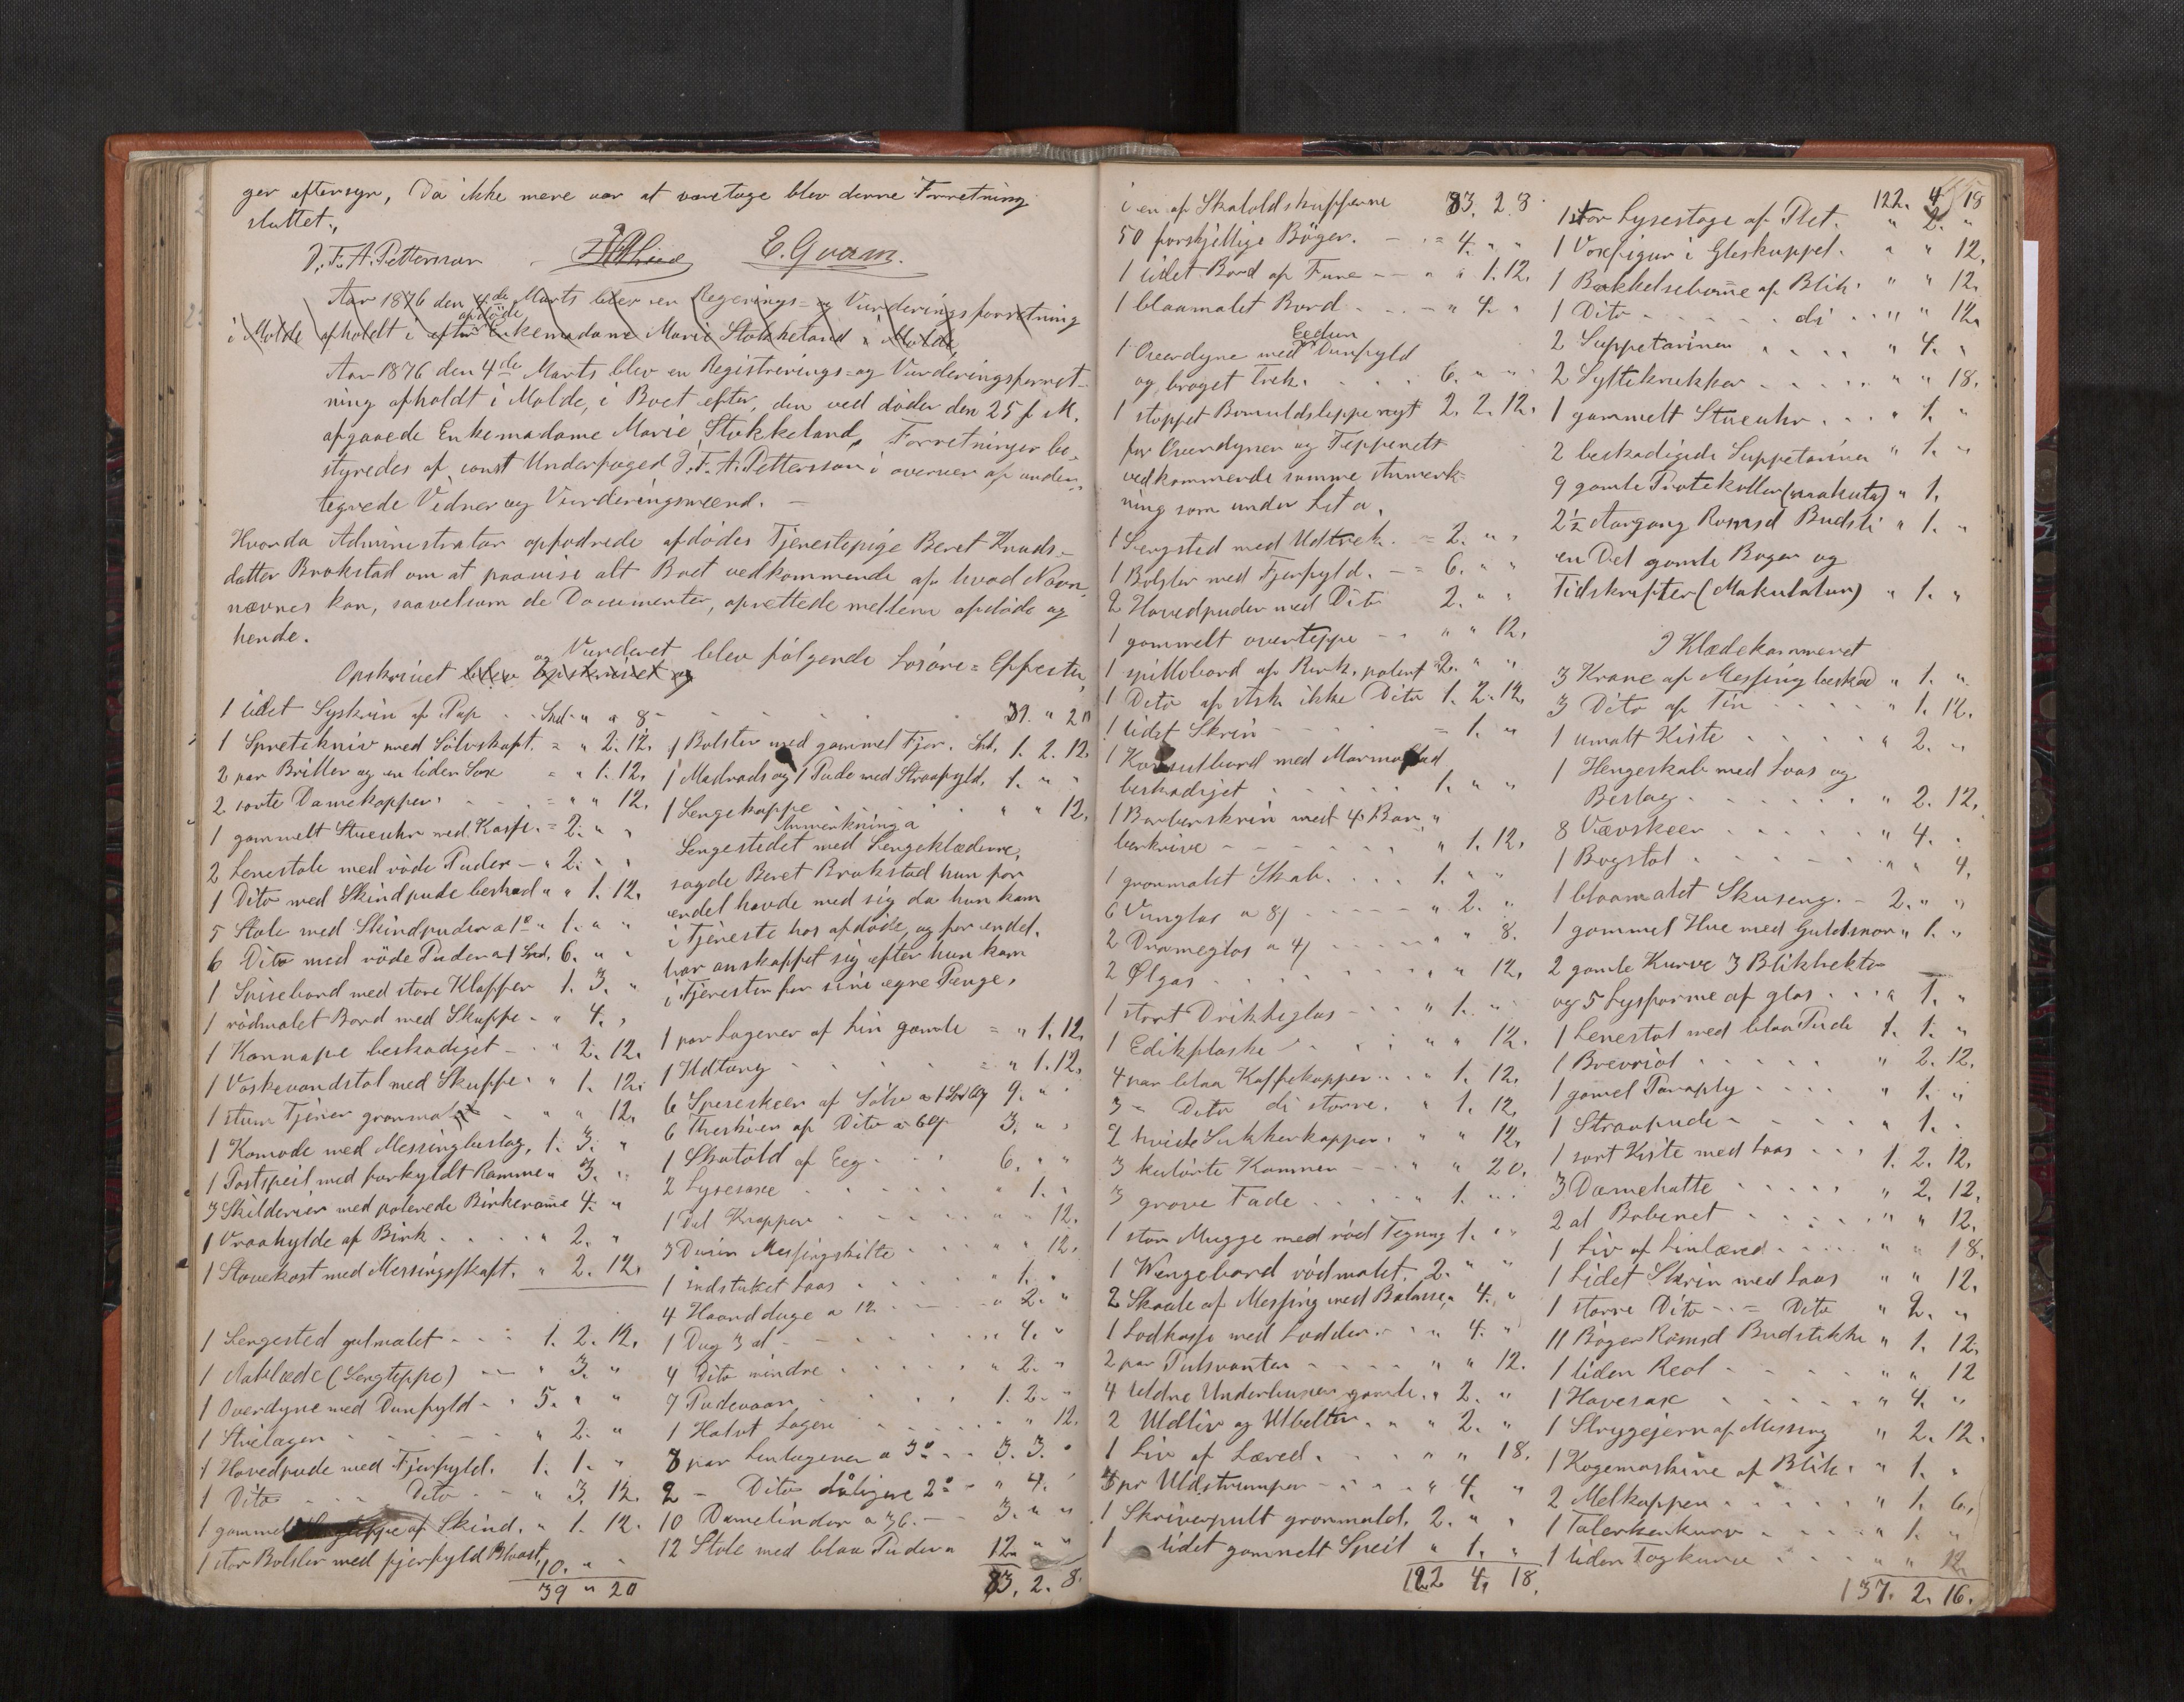 ger eftersyn, Da ikke mere var at varetage blev denne Forretning
sluttet.,
J. F. A. Pettersson E. Gvam.
Aar 1876 den 4de Marts blev en Regerings- og Vurderingsforretning
afdöde
i Molde afholdt i efter Enkemadame Marie Stokkeland i Molde
Aar 1876 den 4de Marts blev en Registrerings- og Vurderingsforret-
ning afholdt i Molde, i Boet efter, den ved döden den 25 f. M.
afgaaede Enkemadame Marie Stokkeland, Forretningen be-
styredes af const Underfoged J. F. A. Pettersson i overvær af under-
tegnede Vidner og Vurderingsmænd. —
Hvorda Administrator opfodrede afdödes Tjenestepige Beret Knuds-
datter Brokstad om at paavise alt Boet vedkommende af hvad Navn
nævnes kan, saavelsom de Documenter, oprettede mellem afdöde og
hende.
og Vurderet
Opskrivet blev Opskrivet og blev fölgende Lösöre-Effecter,
1 lidet Syskrin af Pap Spd. " " 8
1 Spretekniv med Sölvskaft. = " 2. 12.
2 par Briller og en liden Sax = " 1. 12.
2 sorte Damekapper = " " 12.
1 gammelt Stueuhr med Kasse. = 2. " "
2 Lenestole med röde Puder - " 2. "
1 Dito med Skindpude beskad " " 1. 12.
5 Stole med Skindpuder a 1 " 1. " "
6 Dito med röde Puder a 1 Spd. 6. " "
1 Spisebord med store Klapper 1. 3. "
1 rödmalet Bord med Skuffe - " 4. "
1 Kannape beskadiget - " 2. 12.
1 Vaskevandstol med Skuffe. " 1. 12.
1 stum Tjener grönmalet " " 12.
1 Komode med Messingbeslag, 1. 3. "
1 Postspeil med forgyldt Ramme " 3. "
3 Skilderier med polerede Birkerame 4. "
1 Vraahylde af Birk " 2. "
1 Stövekost med Messingskaft. " 2. 12.
1 Sengested gulmalet 1. 2. 12.
1 Aaklæde (Sengteppe) " 3. "
1 Overdyne med Dunfyld 5. " "
1 Strilagen " 2. "
1 Hovedpude med Fjerfyld. 1. 1. "
1 Dito Dito " 3. 12.
1 gammel af Skind. " 1. 12.
1 stor Bolster med fjerfyld 10. " "
39 " 20
39. " 20
1 Bolster med gammel Fjer. Spd. 1. 2. 12.
1 Madrads og 1 Pude med Straafyld. 1. " "
1 Sengekappe " " 12.
Anmerkning a
Sengestedet med Sengeklæderne,
sagde Beret Brokstad hun for
endel havde med sig da hun kom
i Tjeneste hos afdöde, og for endel.
har anskaffet sig efter hun kom
i Tjenesten for sine egne Penge.
1 par Lagener af Lin gamle = " 1. 12.
1 Udtang = " 1. 12.
6 Speseskeer af Sölv 9. " "
6 Theskeer af Dito 3. " "
1 Skatold af Eeg 6. " "
2 Lysesaxe " 1. "
1 Del Knapper " " 12.
3 Dusin Messingskilte " " 12.
1 indstukket Laas " 1. "
4 Haandduge a 12 " 2. "
1 Dug 3 al " 4. "
4 Dito mindre " 2. "
7 Pudevaar 1. 2. "
1 Halvt Lagen " " 12.
8 par Linlagener a 3 3. 3. "
2 - Dito dåligere 2 " 4. "
10 Damelinder a 36. 3. " "
12 Stole med blaa Puder a 12 " "
83. 2. 8.
i en af Skatoldskufferne 83. 2. 8.
50 forskjellige Böger. = 4. " "
1 lidet Bord af Furu " 1. 12.
1 blaamalet Bord " 4. "
Eedun
1 Overdyne med Dunfyld
og broget Trek. 6. " "
1 stoppet Bomuldsteppe nyt 2. 2. 12.
for Overdynen og Teppenett
vedkommende samme Anmerk-
ning som under Lit a.
1 Sengsted med Udtrek. = 2. " "
1 Bolster med Fjerfyld. = 6. " "
2 Hovedpuder med Dito 2. " "
1 gammelt overteppe " " 12.
1 spillebord af Birk, polert 2. " "
1 Dito af Ask ikke Dito 1. 2. 12.
1 lidet Skrin = 1. "
1 Konsulbord med Marmorplad
beskadiget 1. " "
1 Barberskrin med 4 Bar
berknive " 1. 12.
1 grönmalet Skab. 1. " "
6 Vinglas a 8 " 2. "
2 Drameglas a 4 " " 8.
2 Ølgas " " 12.
1 stort Drikkeglas " 1. "
1 Edikflaske " " 12.
4 par blaa Kaffekopper " 1. 12.
3 - Dito di större. " 1. 12.
2 hvide Sukkerkopper. " " 12.
3 kulörte Kommer " " 20.
3 grove Fade " 1. "
1 stor Mugge med röd Tegning 1. "
1 Hengebord rödmalet. 2. " "
2 Skaale af Messing med Balanse, " 4. "
1 Lodkasse med Lodder. " 4. "
2 par Pulsvanter " " 12.
4 Uldne Underbuxer gamle. " 2. "
2 Udliv og Utbelter " 2. "
1 Liv af Læred. " " 18.
5 pr Uldstrumper " 4. "
1 Skriverpult grönmaled. 2. " "
1 lidet gammelt Speil " 1. "
122 4. 18.
122. 4. 18
1 stor Lysestage af Plet. " 2. "
1 Voxfigur i Glaskuppel. " " 12.
1 Bakkelsebome af Blik. " " 12.
1 Dito di " " 12.
2 Suppetariner " 4. "
2 Syltekrukker " " 18.
1 gammelt Stueuhr " 1. "
2 beskadigede Suppetariner " 1. "
9 gamle Protokoller (makula) " 1.
2½ Aargang Romsd Budsti " 1. "
en Del gamle Böger og
Tidskrifter (Makulatur) " 1. "
I Klædekammeret
3 Krane af Messing beskad " 1. "
3 Dito af Tin " 1. 12.
1 umalt Kiste " 2. "
1 Hengeskab med Laas og
Beslag " 2. 12.
8 Vævskeer " 4. "
1 Bogstol " " 4.
1 blaamalet Skuseng. 2. " "
1 gammel Hue med Guldsnor " 1. "
2 gamle Kurve 3 Blikbekke
og 5 Lysforme af glas " 1. "
1 Lenestol med blaa Pude 1. 1. "
1 Brevriol " 2. 12.
1 gamel Paraply " 1. "
1 Straapude " 1. "
1 sort Kiste med Laas 1. 2. 12.
3 Damehatte " 2. 12.
2 al Bobinet " " 12.
1 Liv af Linlæred " " 18.
1 Lidet Skrin med Laas " " 12.
1 större Dito = Dito " 2. "
11 Böger Romsd Budstikke " 1. 12.
1 liden Reol " " 12
1 Havesax " 4. "
1 Strygejern af Messing " 2. 12.
1 Kogemaskine af Blik. " 1. "
2 Melkopper " 1. 6.
1 Talerkenkurv " 1. "
1 liden Togkurv " " 12.
137. 2. 16.